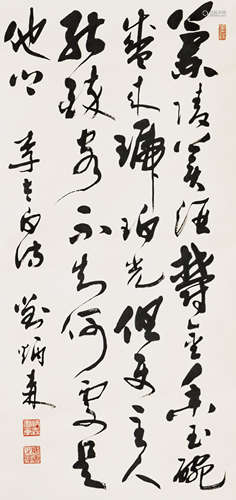 蘭陵美酒鬱金香玉碗
盛来琥珀光但使主人
能醉客不知何處是
他鄉 李太白詩 劉炳森